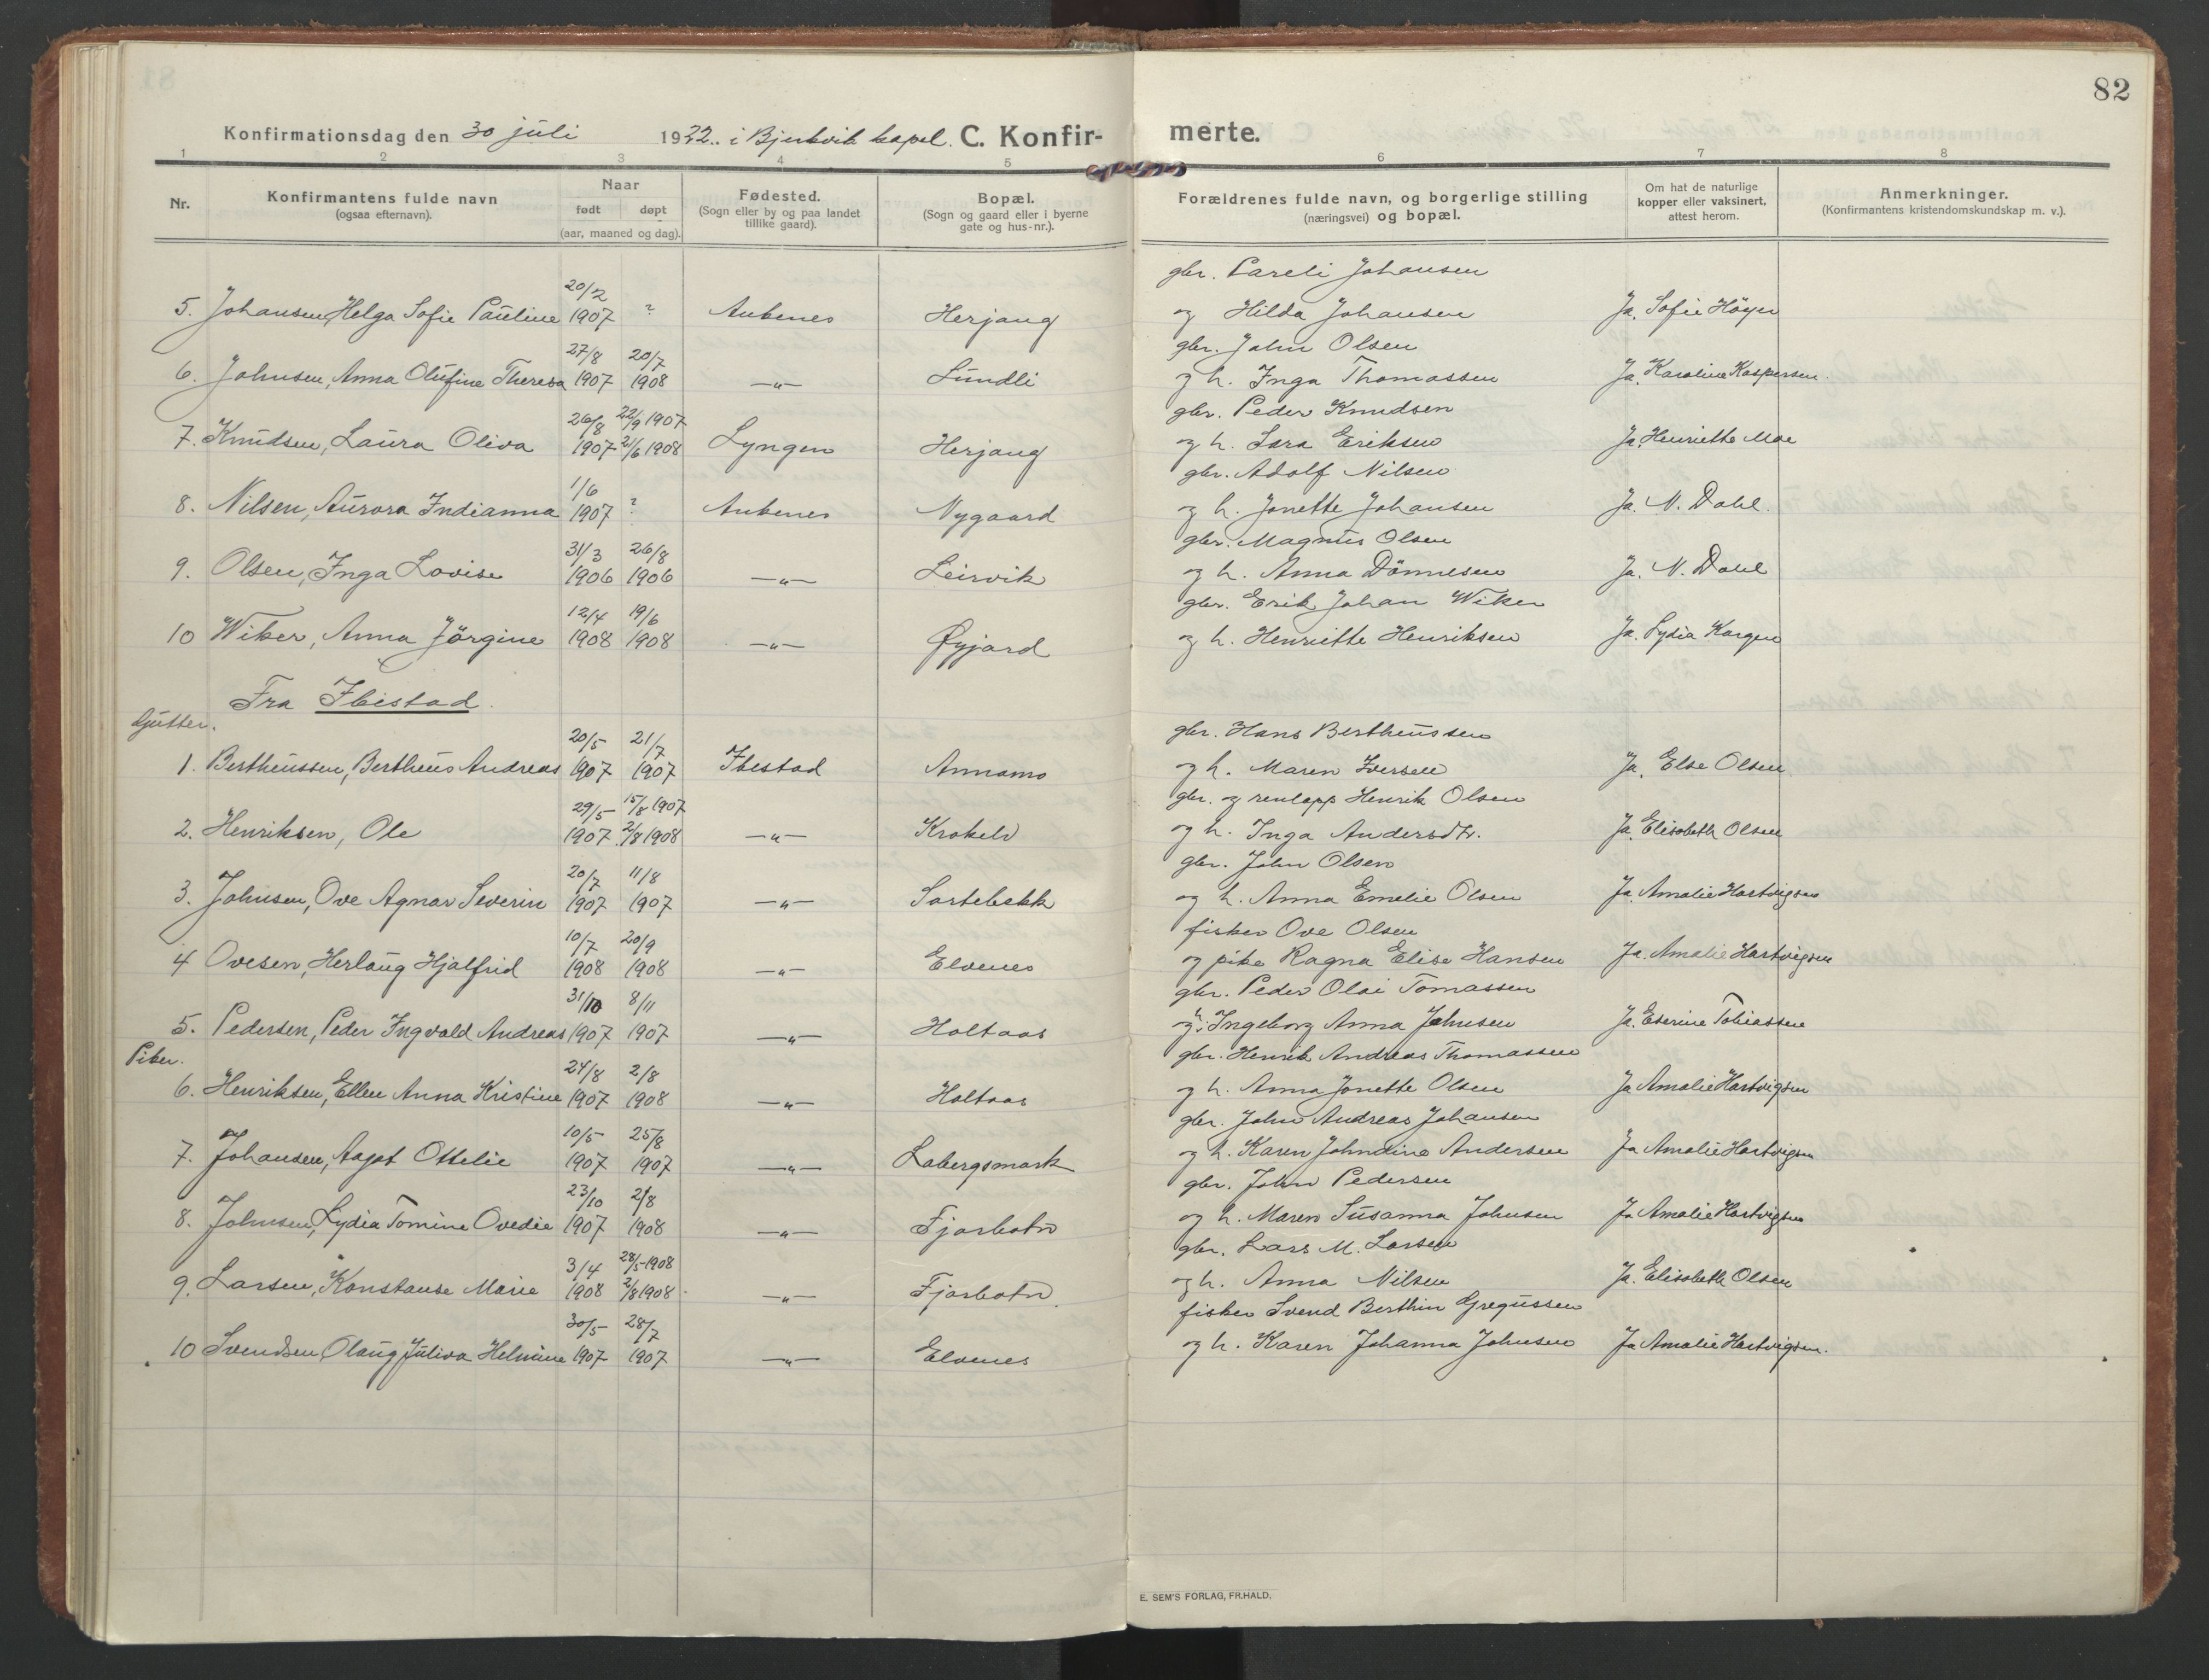 82
Konfirmationsdag den 30 juli 1922. i Bjerkvik kapel. C. Konfirmerte.
1 2 3 4 5 6 7 8
Nr.
Konfirmantens fulde navn
(ogsaa efternavn).
Naar
født døpt
(aar, maaned og dag).
Fødested.
(Sogn eller by og paa landet
tillike gaard).
Bopæl.
(Sogn og gaard eller i byerne
gate og hus-nr.).
Forældrenes fulde navn, og borgerlige stilling
(næringsvei) og bopæl.
Om hat de naturlige
kopper eller vaksinert,
attest herom.
Anmerkninger.
(Konfirmantens kristendomskundskap m. v.).
20/2 gbr. Pareli Johansen
5. Johansen, Helga Sofie Pauline 1907 ? Ankenes Herjang og Hilda Johansen Ja. Sofie Höyer
27/8 20/7 gbr. John Olsen
6. Johnsen, Anna Olufine Theresa 1907 1908 —"— Lundli og h. Inga Thomassen Ja. Karoline Kaspersen.
26/8 22/9 1907 gbr. Peder Knudsen
7. Knudsen, Laura Oliva 1907 21/6 1908 Lyngen Herjang og h. Sara Eriksen Ja. Henriette Moe
1/6 gbr. Adolf Nilsen
8. Nilsen, Aurora Indianna 1907 ? Ankenes Nygaard og h. Jonette Johansen Ja. N. Dahl.
31/3 26/8 gbr. Magnus Olsen
9. Olsen, Inga Lovise 1906 1906 —"— Leirvik og h. Anna Dönnesen Ja. N. Dahl
12/4 19/6 gbr. Erik Johan Wiker
10 Wiker, Anna Jörgine 1908 1908 —"— Øyjord og h. Henriette Henriksen Ja. Lydia Korgen
Fra Ibestad.
Gutter.
20/5 21/7 gbr. Hans Bertheussen
1. Bertheussen, Bertheus Andreas 1907 1907 Ibestad Annamo og h. Maren Iversen Ja. Else Olsen
29/5 15/8 1907 gbr. og renlapp Henrik Olsen
2. Henriksen, Ole 1907 2/8 1908 —"— Krokelv og h. Inga Andersdtr. Ja. Elisabeth Olsen
20/7 11/8 gbr. John Olsen
3. Johnsen, Ove Agnar Severin 1907 1907 —"— Sortebekk og h. Anna Emelie Olsen Ja. Amalie Hartvigsen
10/7 20/9 fisker Ove Olsen
4 Ovesen, Herlaug Hjalfrid 1908 1908 —"— Elvenes og pike Ragna Elise Hansen Ja. Amalie Hartvigsen
31/10 8/11 gbr. Peder Olai Tomassen
5. Pedersen, Peder Ingvald Andreas 1907 1907 —"— Holtaas og h. Ingeborg Anna Johnsen Ja. Eserine Tobiassen
Piker.
24/8 2/8 gbr. Henrik Andreas Thomassen
6. Henriksen, Ellen Anna Kristine 1907 1908 —"— Holtaas og h. Anna Jonette Olsen Ja Amalie Hartvigsen
10/5 25/8 gbr. John Andreas Johansen
7. Johansen, Aagot Ottelie 1907 1907 —"— Labergsmark og h. Karen Johndine Andersen Ja Amalie Hartvigsen
23/10 2/8 gbr. John Pedersen
8. Johnsen, Lydia Tomine Ovedie 1907 1908 —"— Fjorbotn og h. Maren Susanna Johnsen Ja Amalie Hartvigsen
3/4 28/5 1908 gbr. Lars M. Larsen
9. Larsen, Konstanse Marie 1908 2/8 1908 —"— Fjorbotn. og h. Anna Nilsen Ja. Elisabeth Olsen
30/5 28/7 fisker Svend Berthin Gregussen
10 Svendsen Olaug Juliva Helmine 1907 1907 —"— Elvenes og h. Karen Johanna Johnsen Ja Amalie Hartvigsen.
E. SEM'S FORLAG, FR.HALD.